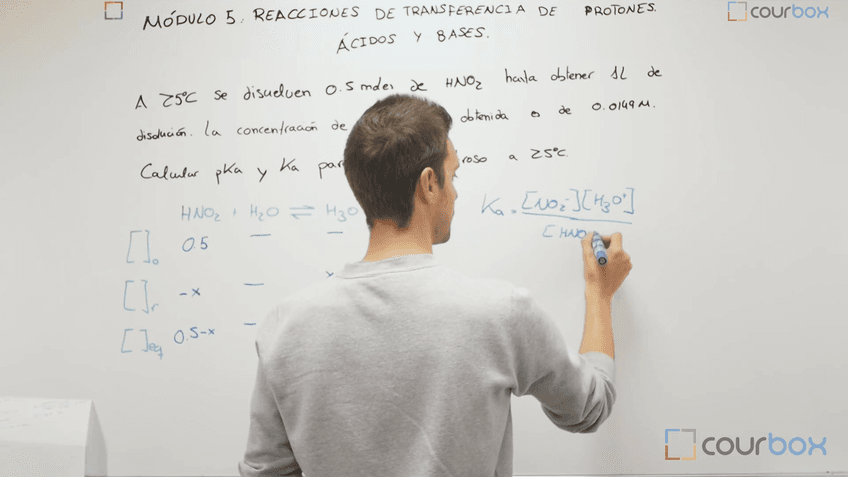 MÓDULO 5. REACCIONES DE TRANSFERENCIA DE PROTONES.
ÁCIDOS Y BASES.
courbox
A 25ºC se disuelven 0.5 moles de HNO2 hasta obtener 1L de
disolución. La concentración de obtenida es de 0.0149 M.
Calcular pKa y Ka para roso a 25ºC.
HNO2 + H2O ⇌ H3O
[ ]o 0.5 — —
[ ]r -x — x
[ ]eq 0.5-x —
Ka = [NO2-][H3O+]
[HNO
courbox